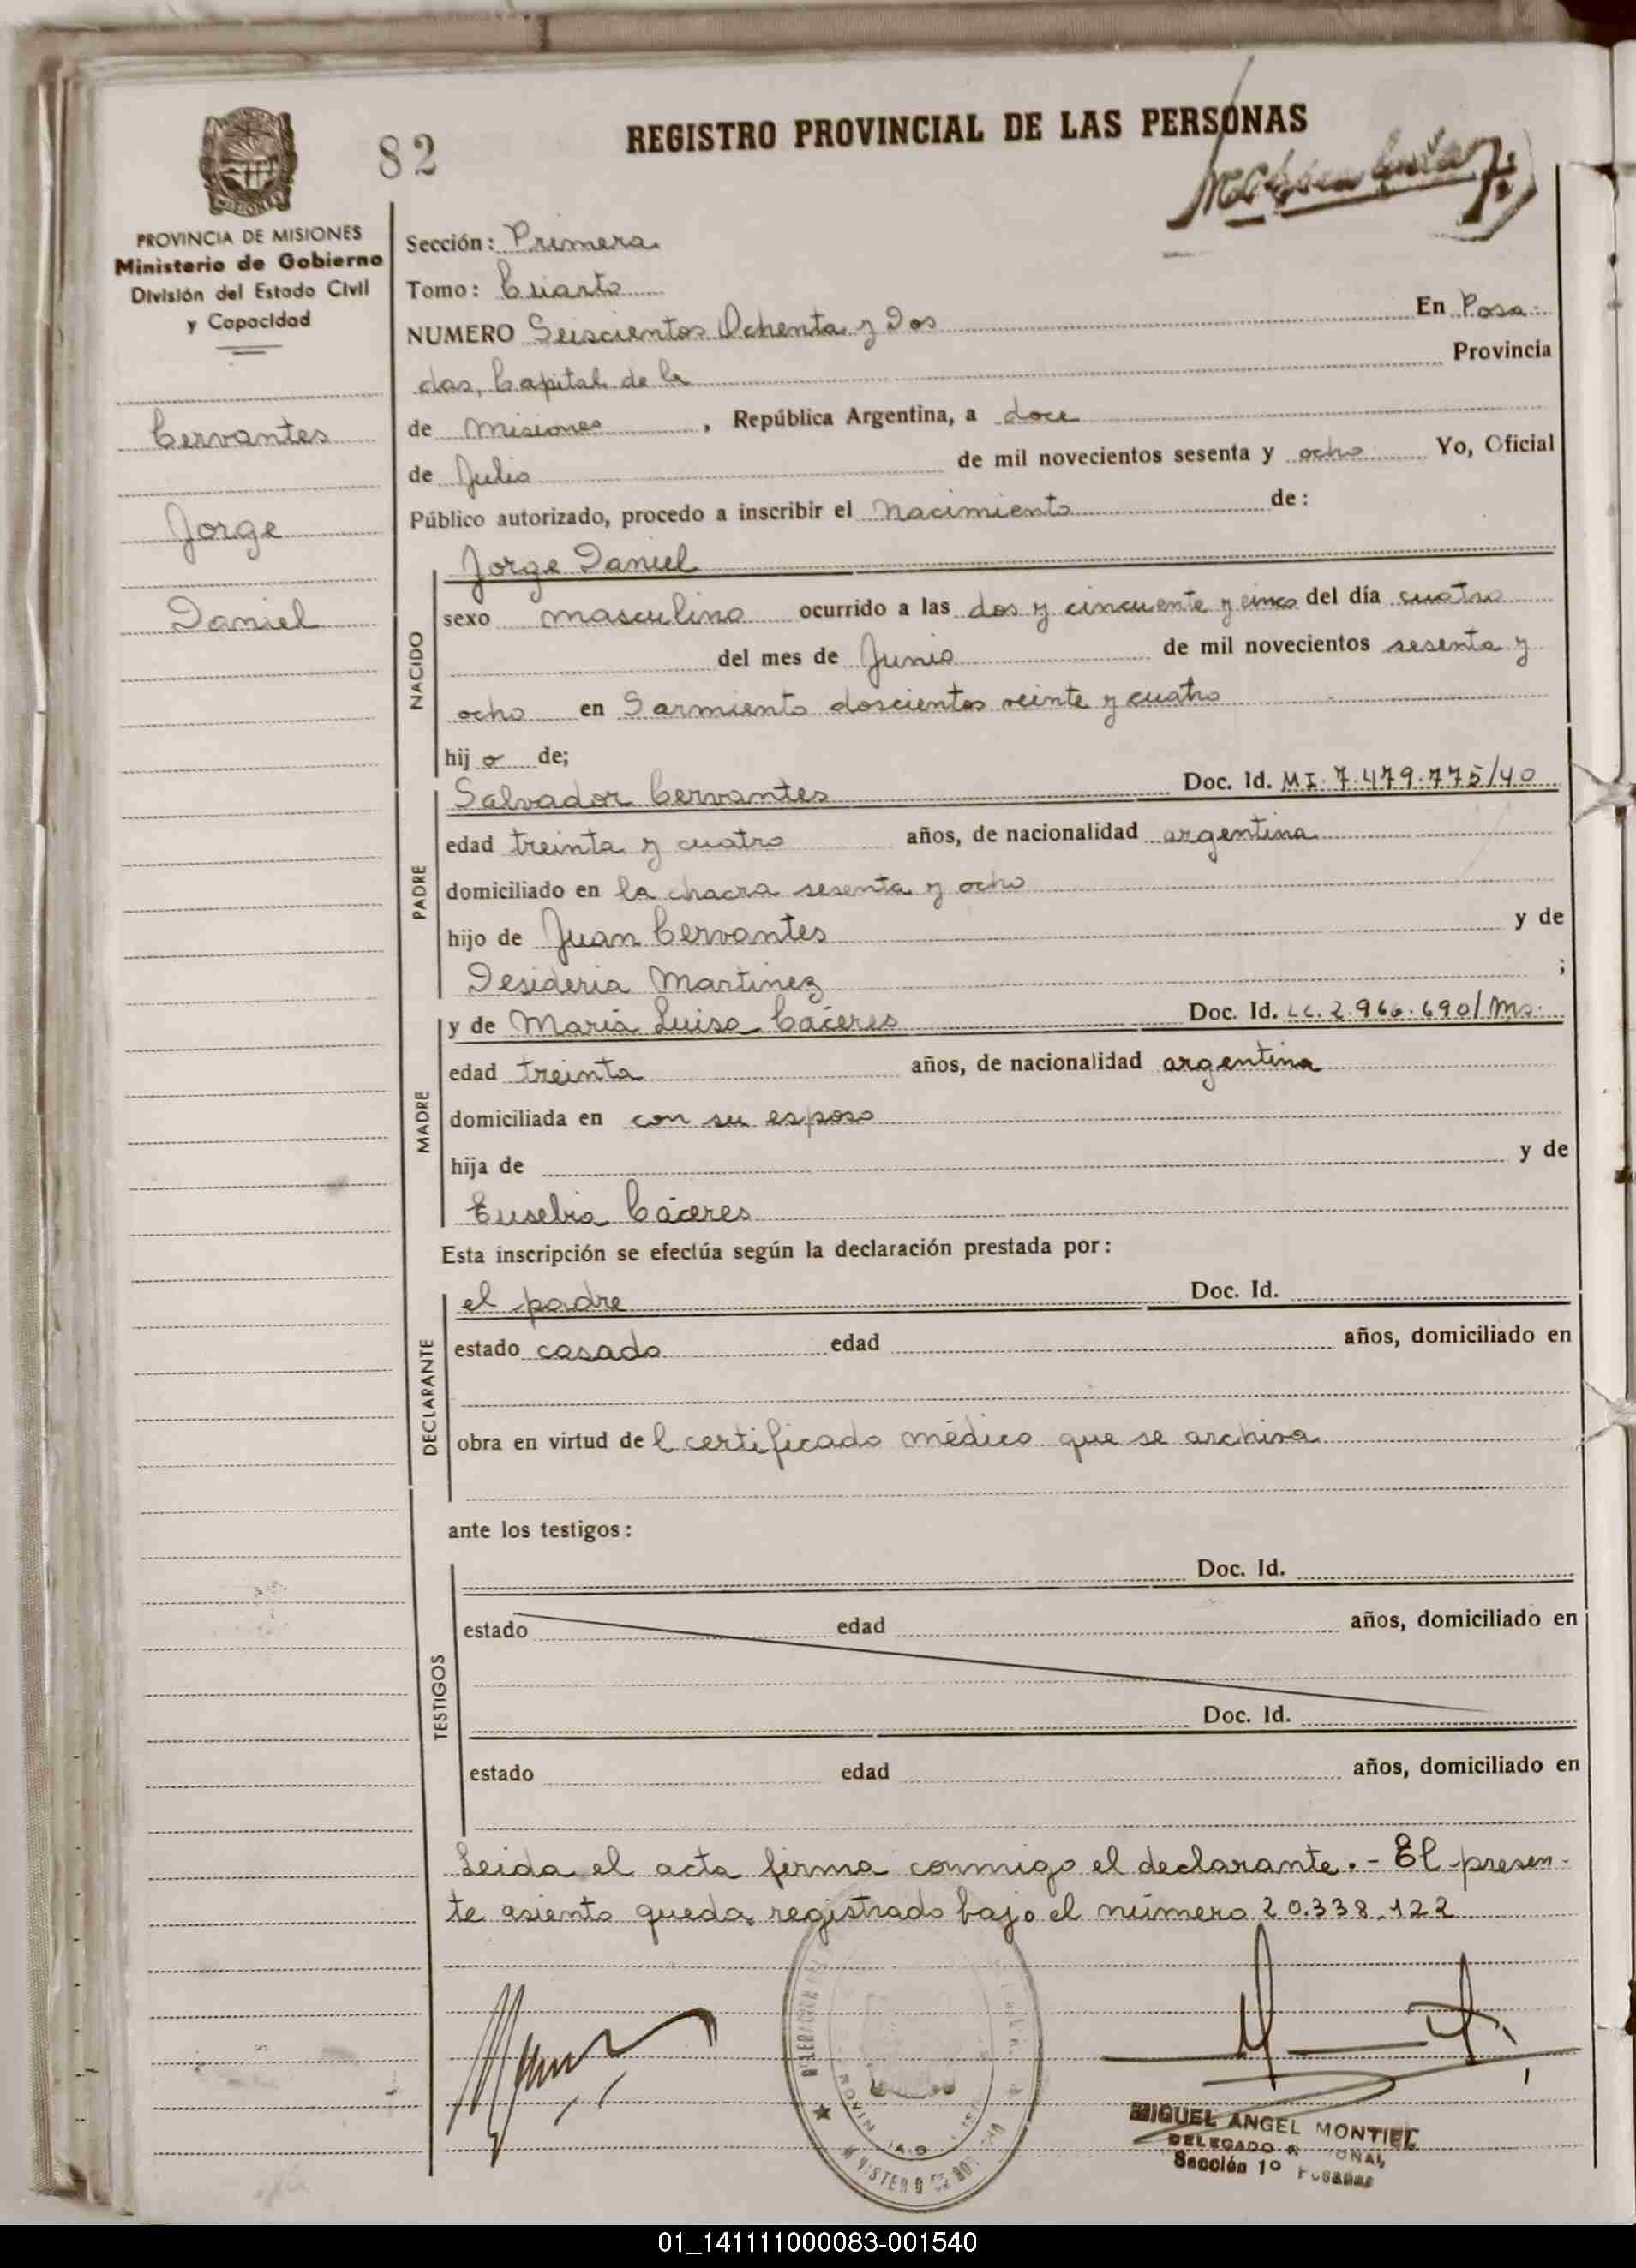 82
REGISTRO PROVINCIAL DE LAS PERSONAS
MISIONES
PROVINCIA DE MISIONES
Ministerio de Gobierno
División del Estado Civil
y Capacidad
Cervantes
Jorge
Daniel
Sección: Primera
Tomo: Cuarto
NUMERO Seiscientos Ochenta y Dos En Posa-
das, Capital de la Provincia
de Misiones, República Argentina, a doce
de Julio de mil novecientos sesenta y ocho Yo, Oficial
Público autorizado, procedo a inscribir el Nacimiento de:
NACIDO
Jorge Daniel
sexo masculino ocurrido a las dos y cincuenta y cinco del día cuatro
del mes de Junio de mil novecientos sesenta y
ocho en Sarmiento doscientos veinte y cuatro
hijo de;
PADRE
Salvador Cervantes Doc. Id. MI. 7.479.775/40
edad treinta y cuatro años, de nacionalidad argentina
domiciliado en la chacra sesenta y ocho
hijo de Juan Cervantes y de
Desideria Martinez ;
MADRE
y de María Luisa Cáceres Doc. Id. LC. 2.966.690/Ms.
edad treinta años, de nacionalidad argentina
domiciliada en con su esposo
hija de y de
Eusebia Cáceres
Esta inscripción se efectúa según la declaración prestada por:
DECLARANTE
el padre Doc. Id.
estado casado edad años, domiciliado en
obra en virtud del certificado médico que se archiva
ante los testigos:
TESTIGOS
Doc. Id.
estado edad años, domiciliado en
Doc. Id.
estado edad años, domiciliado en
Leida el acta firma conmigo el declarante.- El presen-
te asiento queda registrado bajo el número 20.338.122
MIGUEL ANGEL MONTIEL
DELEGADO
Sección 1º Posadas
01_141111000083-001540